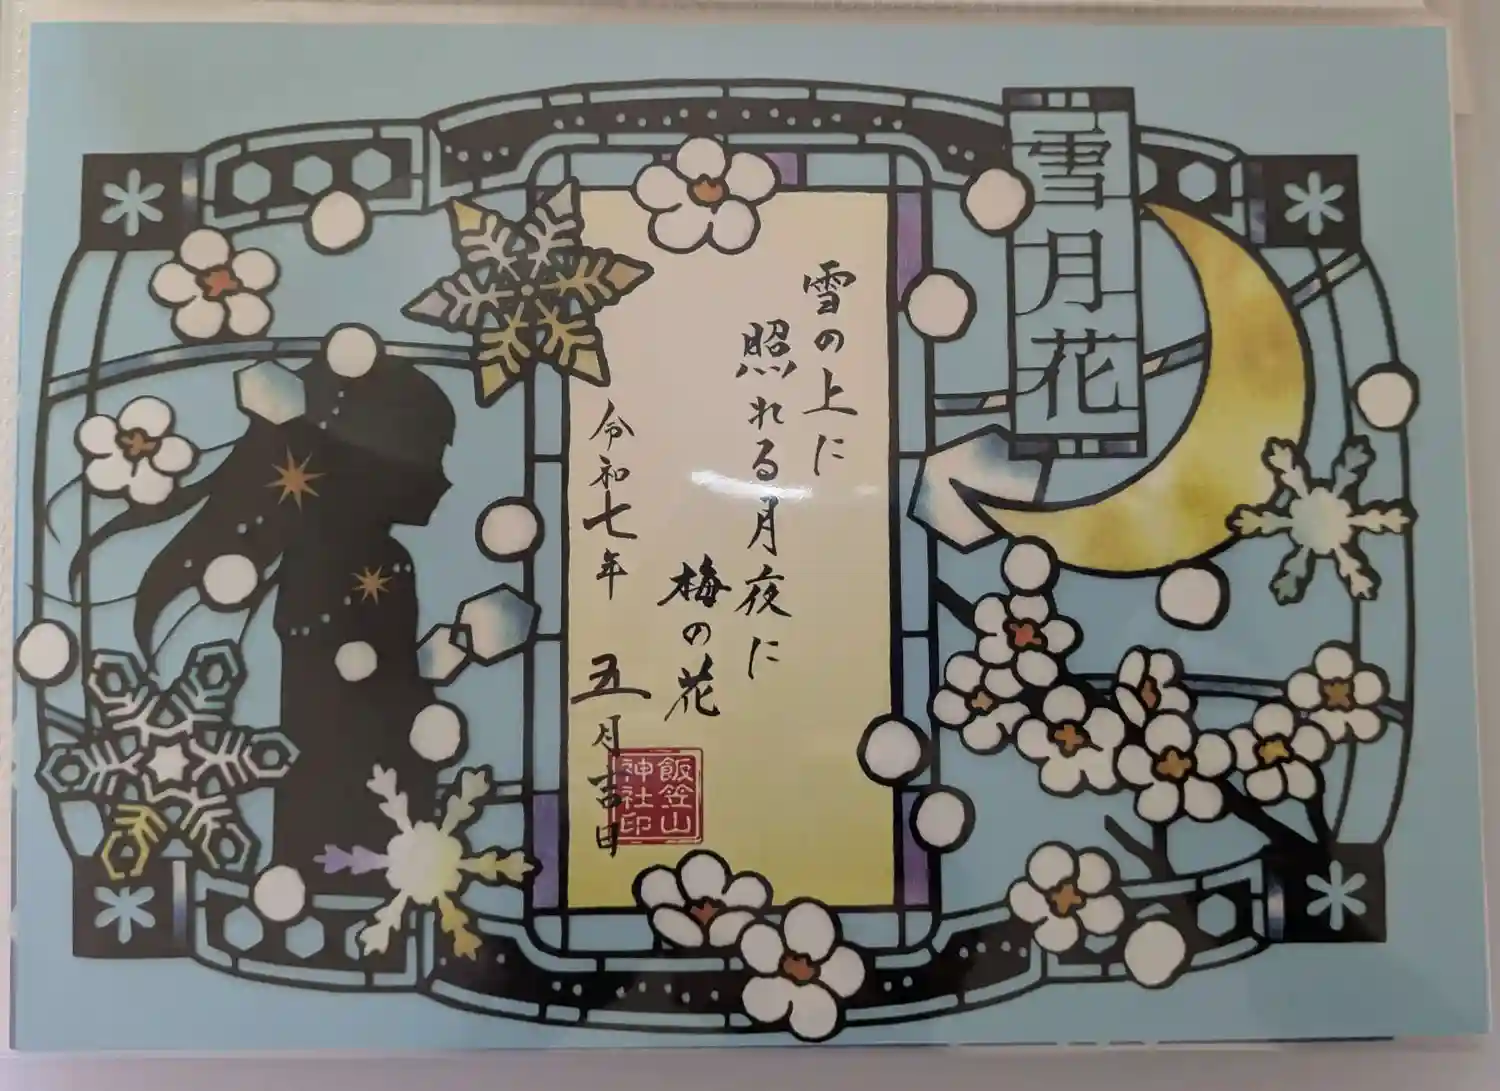 雪月花
雪の上に
照れる月夜に
梅の花
令和七年 五月吉日
飯笠山
神社印